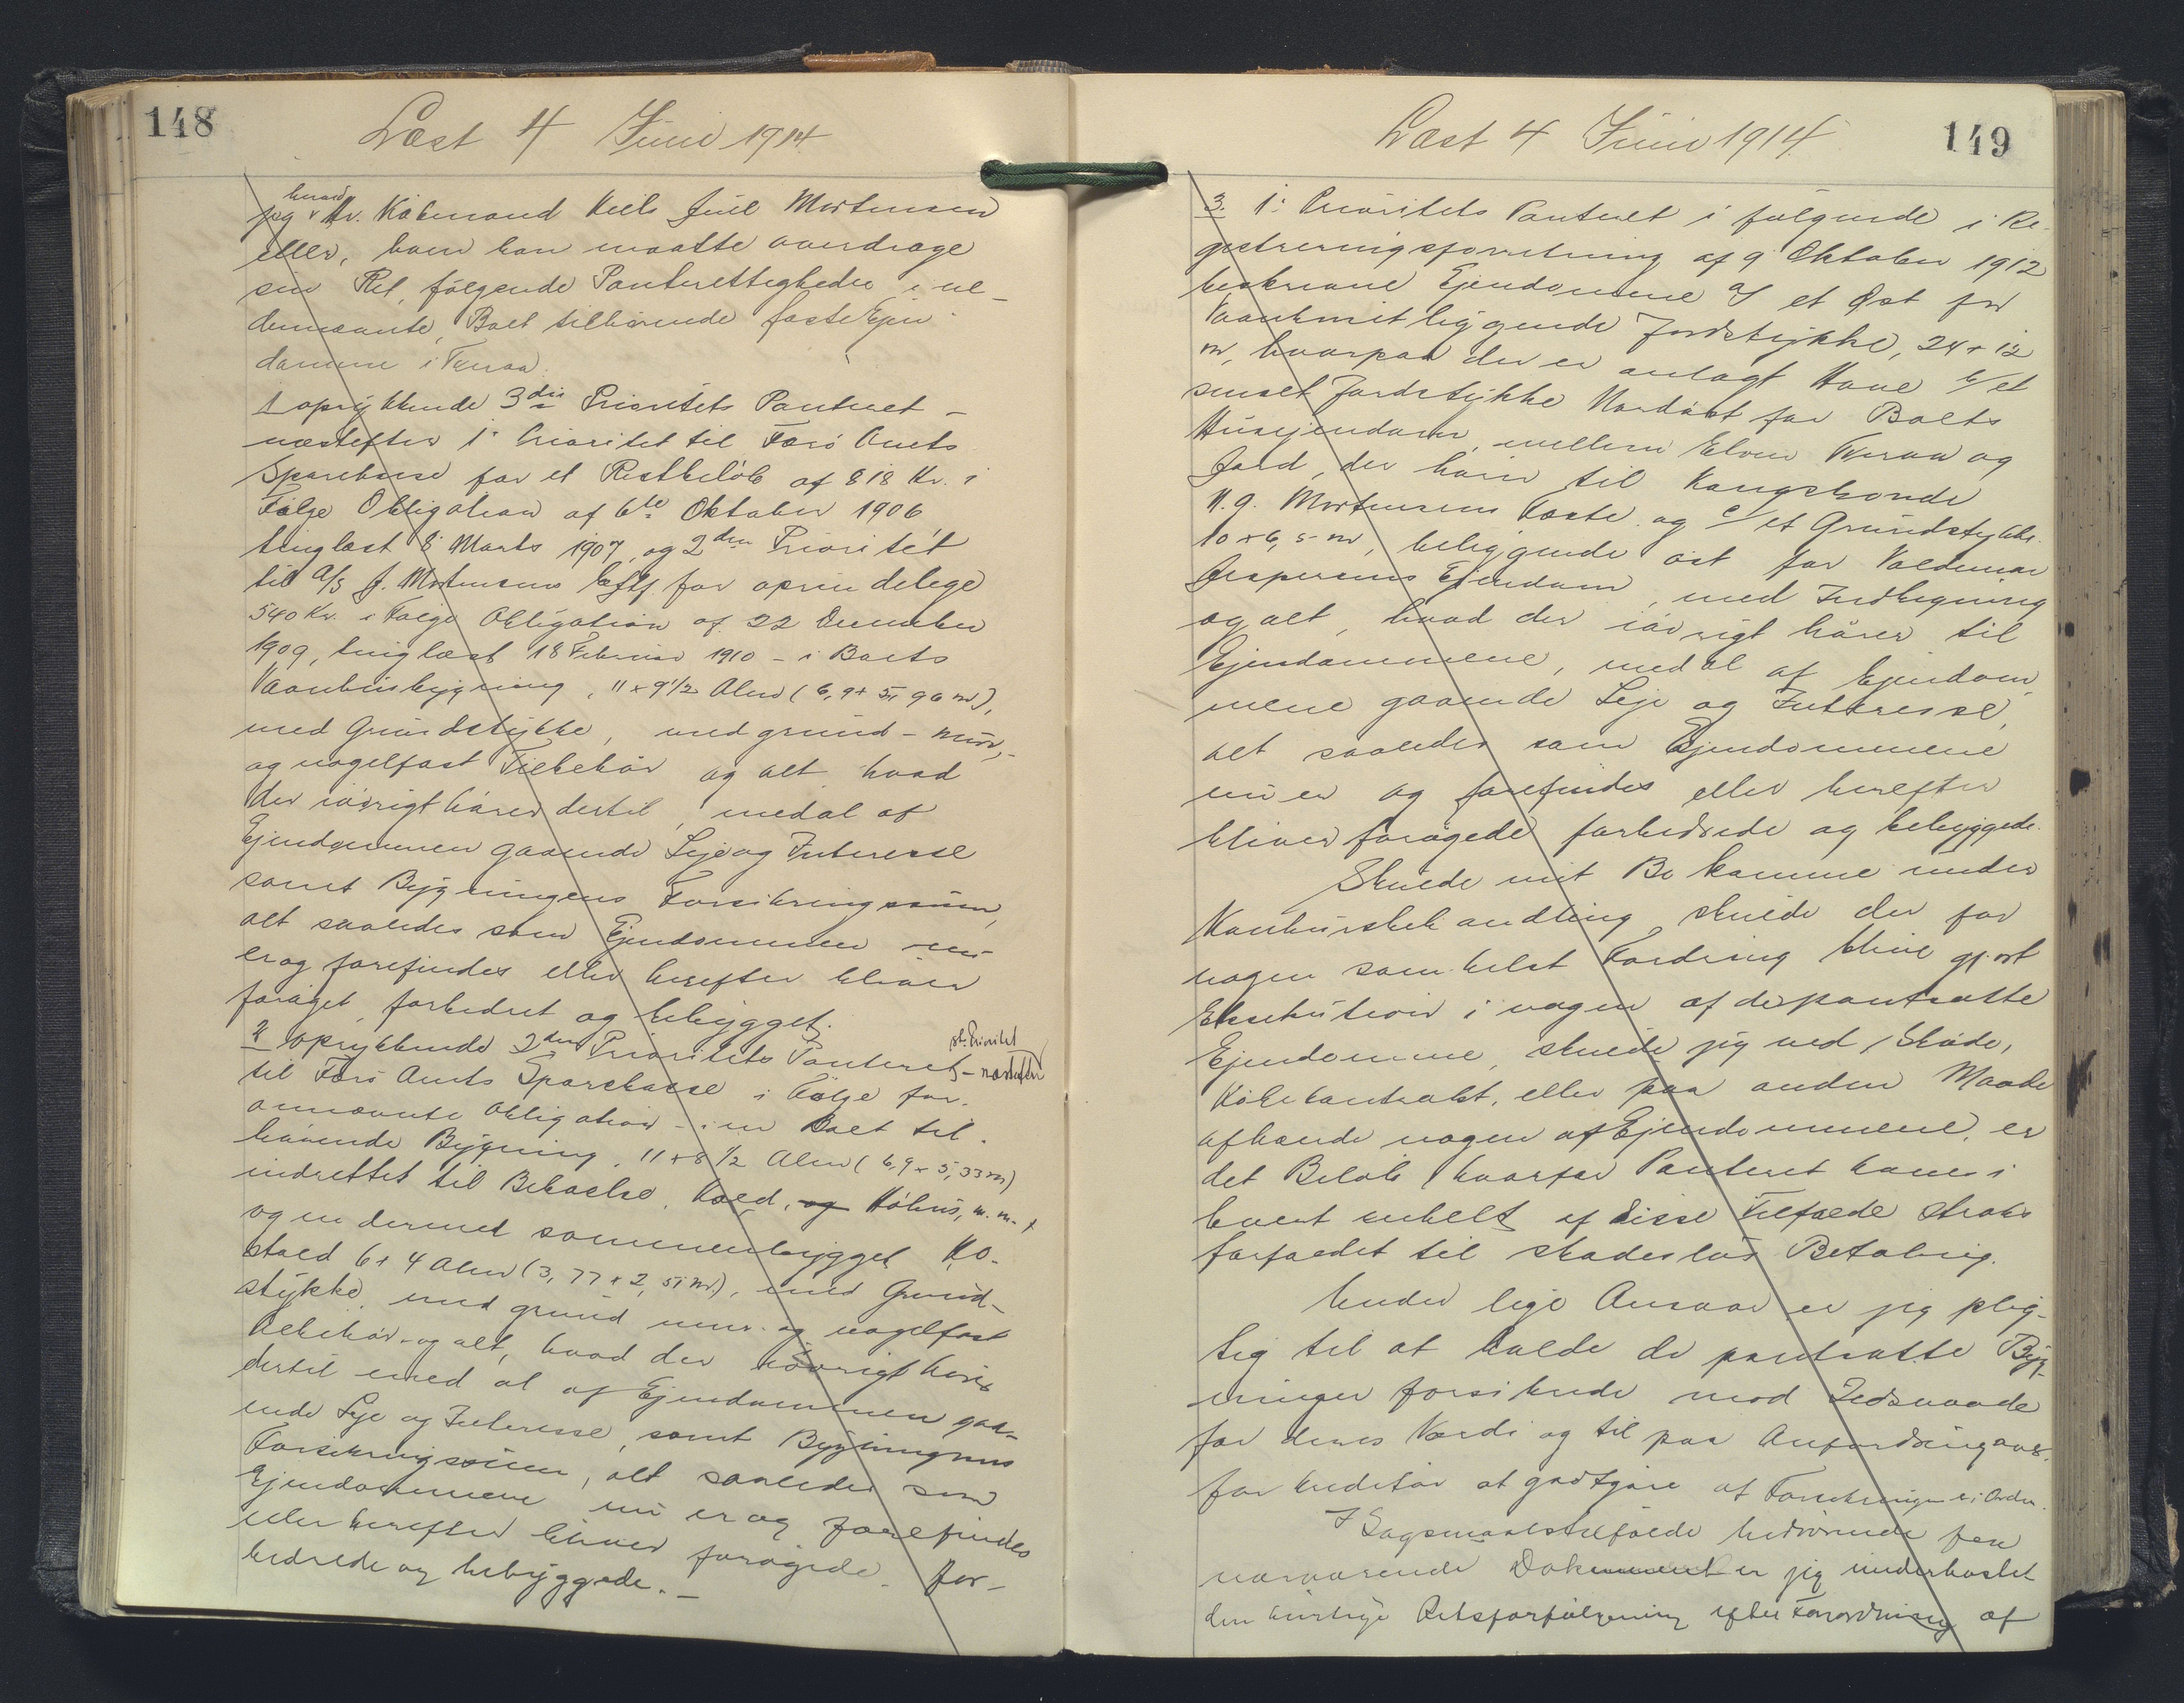 148
Læst 4 Juni 1914
herved
jeg Hr. Købmand Niels Juul Mortensen
eller, hvem han maatte overdrage
sin Ret, følgende Panterettigheder i ne-
dennævnte, Boet tilhørende faste Ejen-
domme i Tveraa.
1 oprykkende 3die Prioritets Panteret –
næstefter 1. Prioritet til Færø Amts
Sparekasse for et Restbeløb af 818 Kr. i
Følge Obligation af 6te Oktober 1906
tinglæst 8 Marts 1907, og 2den Prioritet
til A/S J. Mortensens Eftf. for oprindelige
540 Kr. i Følge Obligation af 22 December
1909, tinglæst 18 Februar 1910 – i Boets
Vaanhusbygning, 11 x 9 1/2 Alen (6,9 x 5,96 m),
med Grundstykke, med grund- mur-
og nagelfast Tilbehør og alt hvad
der iøvrigt hører dertil, med al af
Ejendommen gaaende Leje og Interesse
samt Bygningens Forsikringssum,
alt saaledes som Ejendommen nu
er og forefindes eller herefter bliver
forøget, forbedret og bebygget.
2 oprykkende 2den Prioritets Panteret – næstefter
1st. Prioritet
til Færø Amts Sparekasse i Følge for-
annævnte Obligation – i en Boet til-
hørende Bygning, 11 x 8 1/2 Alen (6,9 x 5,33 m)
indrettet til Beboelse, Stald, og Høhus, m. m.
og en dermed sammenbygget Ko-
stald 6 x 4 Alen (3,77 x 2,51 m), med Grund-
stykke, med grund mur- og nagelfast
Tilbehør og alt, hvad der iøvrigt hører
dertil med al af Ejendommen gaa-
ende Leje og Interesse, samt Bygningens
Forsikringssum, alt saaledes som
Ejendommene nu er og forefindes
eller herefter bliver forøgede, for-
bedrede og bebyggede. –
Læst 4 Juni 1914.
149
3. 1. Prioritets Panteret i følgende i Re-
gistreringsforretning af 9 Oktober 1912
beskrevne Ejendomme a/ et Øst for
Vaanhuset liggende Jordstykke, 24 x 12
m, hvorpaa der er anlagt Have b/ et
smalt Jordstykke Nordøst for Boets
Husejendom, mellem Elven Tveraa og
Jord, der hører til Kongsbonde
N. J. Mortensens Fæste og c/ et Grundstykke
10 x 6,5 m, beliggende øst for Valdemar
Jespersens Ejendom, med Indhegning
og alt, hvad der iøvrigt hører til
Ejendommene, med al af Ejendom-
mene gaaende Leje og Interesse,
alt saaledes som Ejendommene
nu er og forefindes eller herefter
bliver forøgede, forbedrede og bebyggede.
Skulde mit Bo komme under
Konkursbehandling, skulde der for
nogen somhelst Fordring blive gjort
Eksekution i nogen af de pantsatte
Ejendomme, skulde jeg ved Skøde,
Købekontrakt, eller paa anden Maade
afhænde nogen af Ejendommene, er
det Beløb, hvorfor Panteret haves i
hvert enkelt af disse Tilfælde straks
forfaldet til skadesløs Betaling.
Under lige Ansvar er jeg plig-
tig til at holde de pantsatte Byg-
ninger forsikrede mod Ildsvaade
for deres Værdi og til paa Anfordring over-
for Kreditor at godtgøre at Forsikringen er i Orden.
I Sagsmaalstilfælde hidrørende fra
nærværende Dokument er jeg underkastet
den hurtige Retsforfølgning efter Forordning af